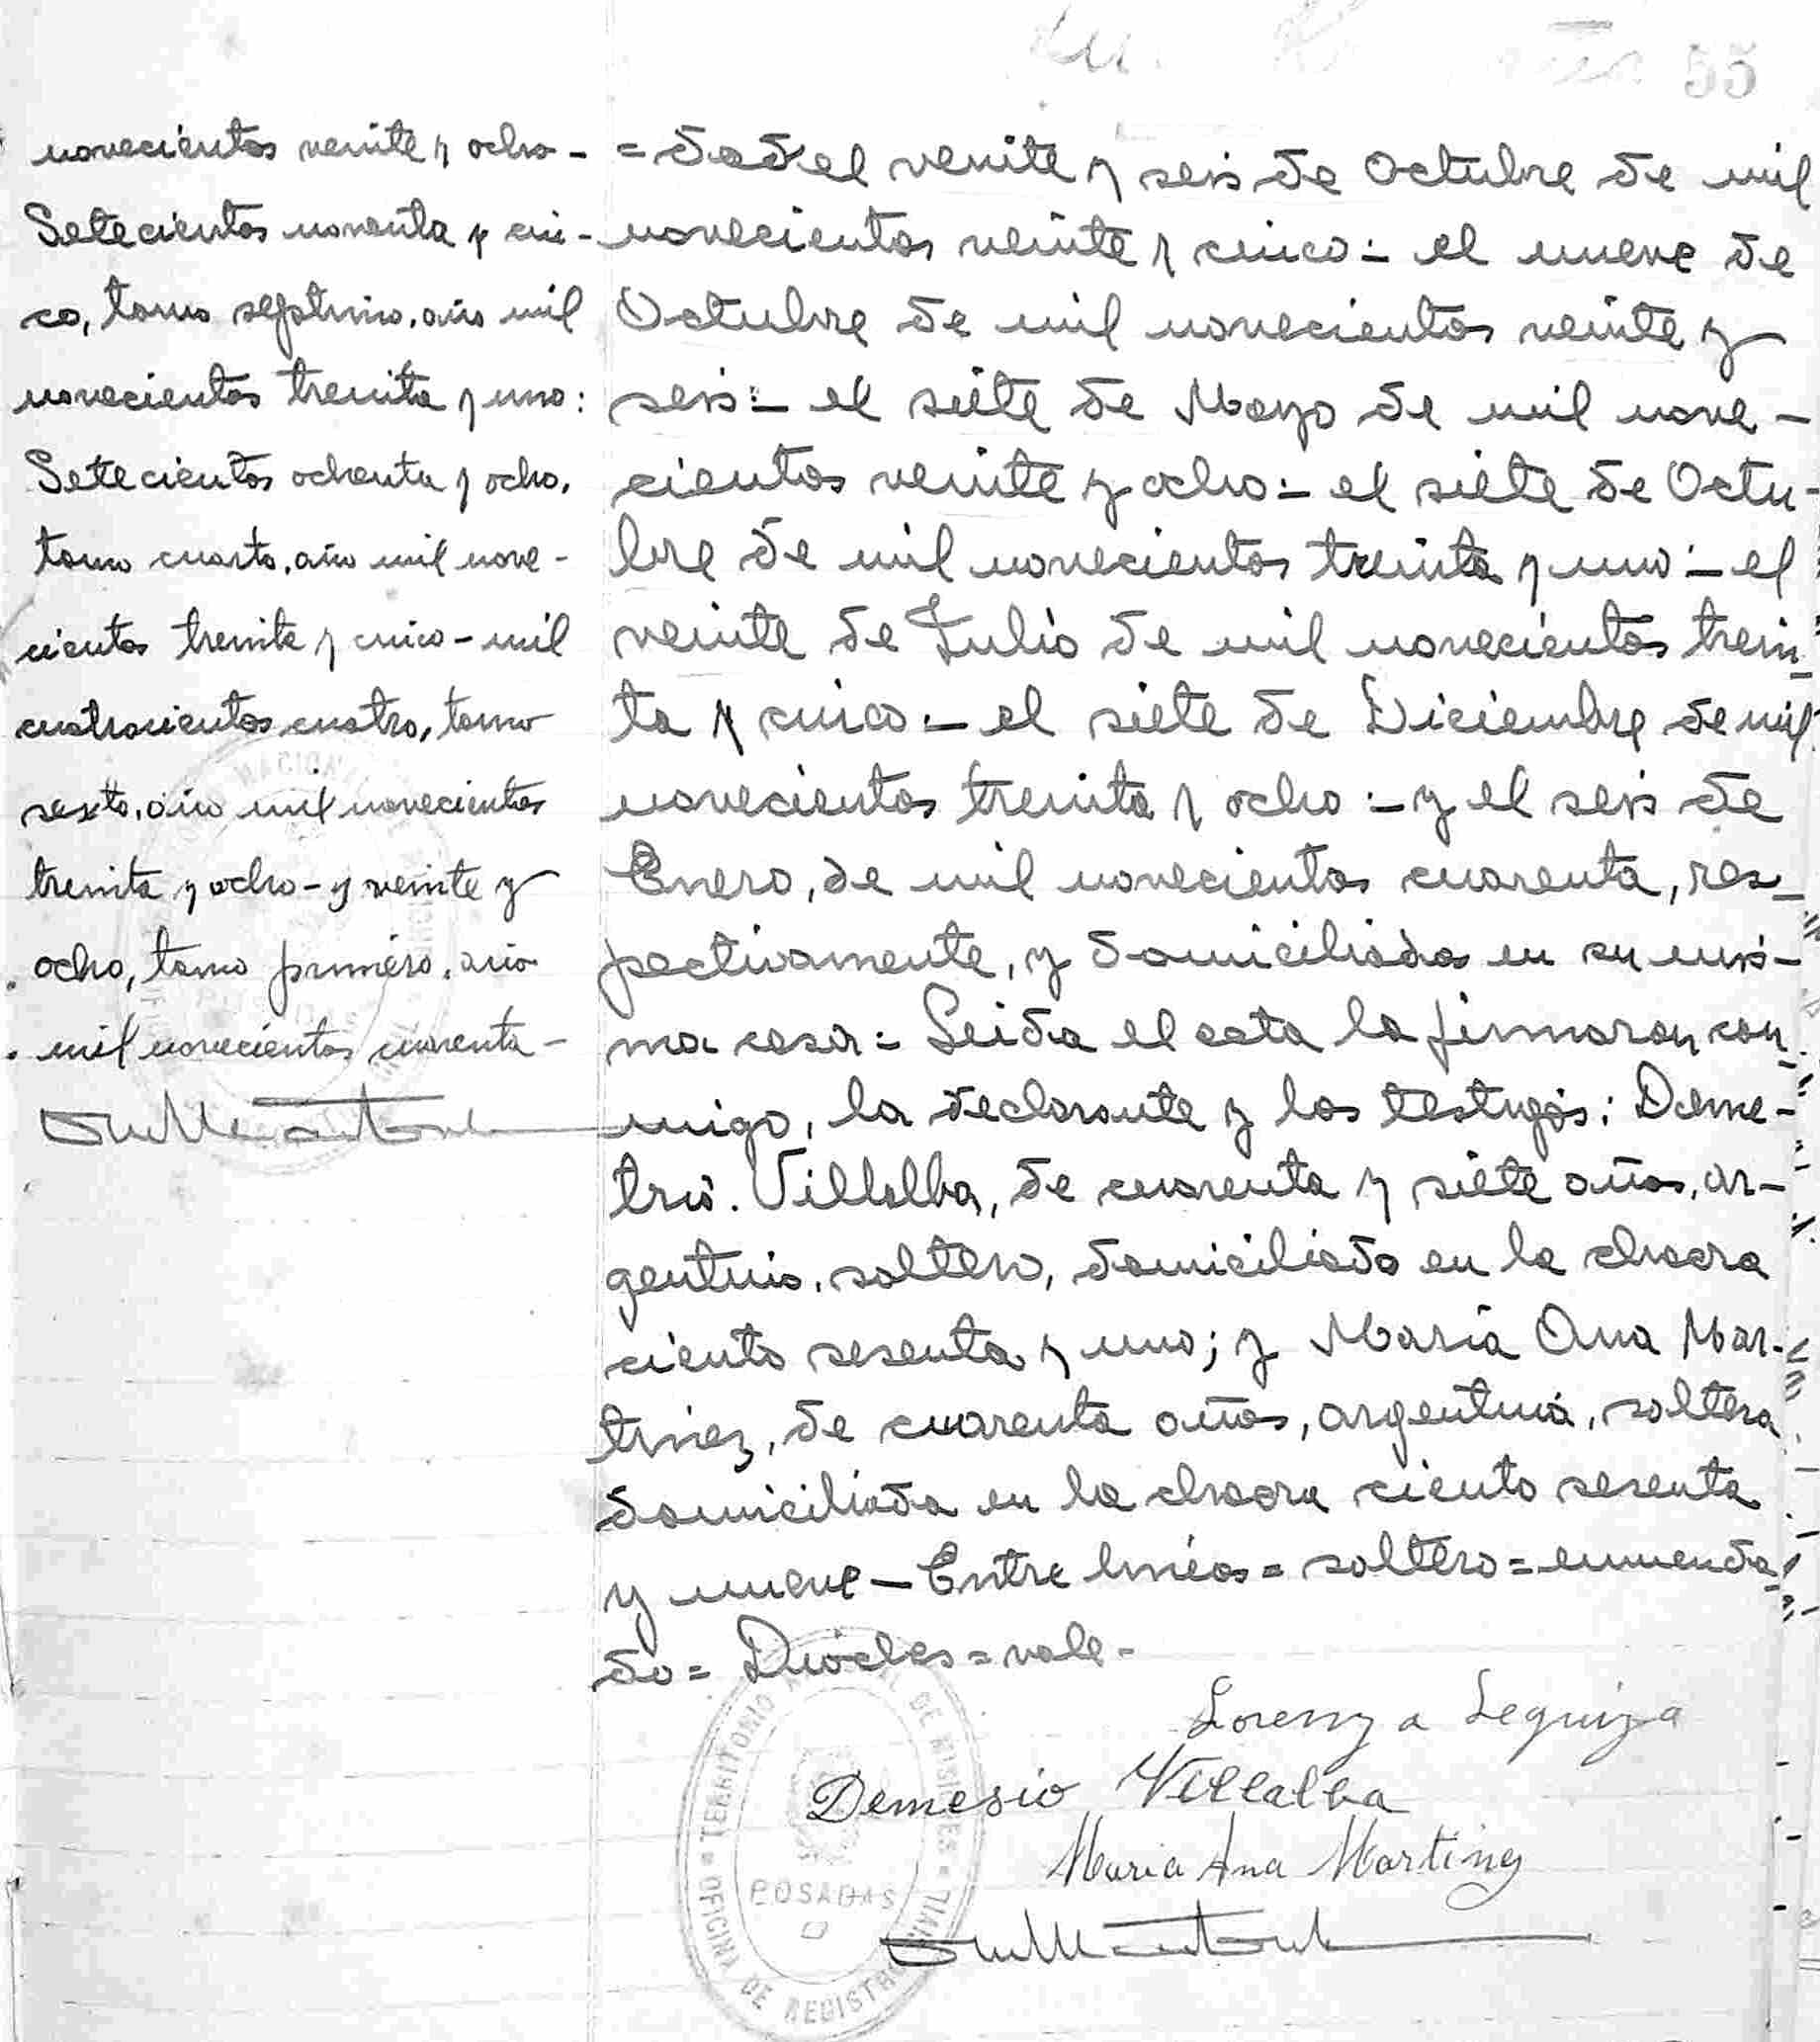 55
novecientos veinte y ocho -
Setecientos noventa y cin-
co, tomo septimo, año mil
novecientos treinta y uno:
Setecientos ochenta y ocho,
tomo cuarto, año mil nove-
cientos treinta y cinco - mil
cuatrocientos cuatro, tomo
sexto, año mil novecientos
treinta y ocho - y veinte y
ocho, tomo primero, año
mil novecientos cuarenta -
= dad el veinte y seis de Octubre de mil
novecientos veinte y cinco :- el nueve de
Octubre de mil novecientos veinte y
seis :- el siete de Mayo de mil nove-
cientos veinte y ocho :- el siete de Octu-
bre de mil novecientos treinta y uno :- el
veinte de Julio de mil novecientos trein-
ta y cinco :- el siete de Diciembre de mil
novecientos treinta y ocho :- y el seis de
Enero, de mil novecientos cuarenta, res-
pectivamente, y domiciliados en su mis-
ma casa :- Leida el acta la firmaron con-
migo, la declarante y los testigos: Deme-
trio. Villalba, de cuarenta y siete años, ar-
gentino, soltero, domiciliado en la chacra
ciento sesenta y uno; y María Ana Mar-
tinez, de cuarenta años, argentina, soltera
domiciliada en la chacra ciento sesenta
y nueve - Entre lineas = soltero = enmenda-
do = Diocles = vale -
Lorenza Leguiza
Demesio Villalba
Maria Ana Martinez
TERRITORIO NACIONAL DE MISIONES
POSADAS
OFICINA DE REGISTRO CIVIL